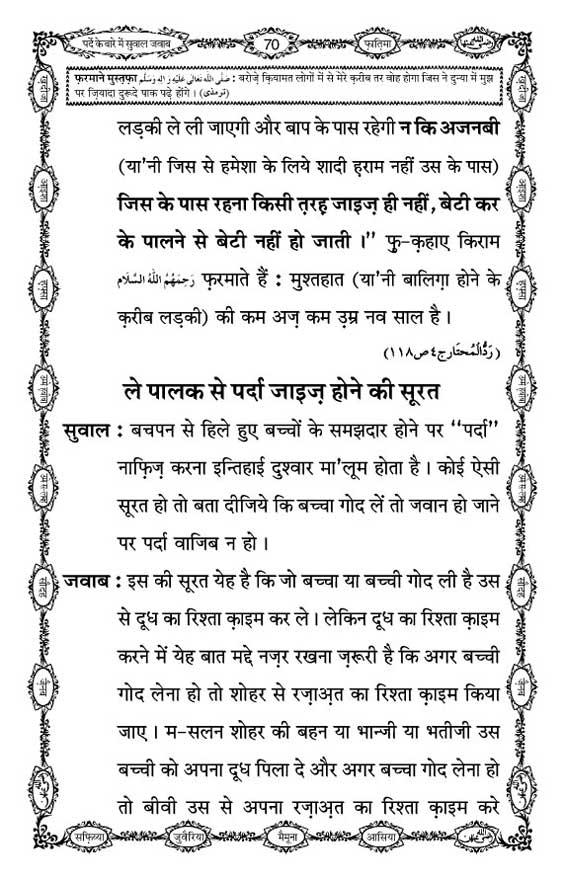 पर्दे के बारे में सुवाल जवाब
70
फ़ातिमा
फ़रमाने मुस्तफ़ा صَلَّى اللّٰهُ تَعَالٰى عَلَيْهِ وَاٰلِهٖ وَسَلَّم : बरोज़े क़ियामत लोगों में से मेरे क़रीब तर वोह होगा जिस ने दुन्या में मुझ
पर ज़ियादा दुरूदे पाक पढ़े होंगे । (ترمذی)
लड़की ले ली जाएगी और बाप के पास रहेगी न कि अजनबी
(या'नी जिस से हमेशा के लिये शादी ह़राम नहीं उस के पास)
जिस के पास रहना किसी त़रह़ जाइज़ ही नहीं, बेटी कर
के पालने से बेटी नहीं हो जाती ।” फु-क़हाए किराम
رَحِمَهُمُ اللّٰهُ السَّلَام फ़रमाते हैं : मुश्तहात (या'नी बालिग़ा होने के
क़रीब लड़की) की कम अज़ कम उ़म्र नव साल है ।
(رَدُّالْمُحتَار ج٤ ص١١٨)
ले पालक से पर्दा जाइज़ होने की सूरत
सुवाल : बचपन से हिले हुए बच्चों के समझदार होने पर “पर्दा”
नाफ़िज़ करना इन्तिहाई दुश्वार मा'लूम होता है । कोई ऐसी
सूरत हो तो बता दीजिये कि बच्चा गोद लें तो जवान हो जाने
पर पर्दा वाजिब न हो ।
जवाब : इस की सूरत येह है कि जो बच्चा या बच्ची गोद ली है उस
से दूध का रिश्ता क़ाइम कर ले । लेकिन दूध का रिश्ता क़ाइम
करने में येह बात मद्दे नज़र रखना ज़रूरी है कि अगर बच्ची
गोद लेना हो तो शोहर से रज़ाअ़त का रिश्ता क़ाइम किया
जाए । म-सलन शोहर की बहन या भान्जी या भतीजी उस
बच्ची को अपना दूध पिला दे और अगर बच्चा गोद लेना हो
तो बीवी उस से अपना रज़ाअ़त का रिश्ता क़ाइम करे
सफ़िय्या
जुवैरिया
मैमूना
आसिया